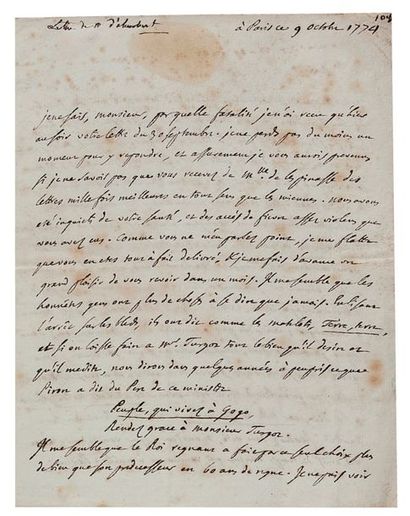 Lettre de M. d'Alembert
à Paris ce 9 octobre 1774
je ne sais, monsieur, par quelle fatalité je n'ai recu qu'hier
au soir votre lettre du 30 septembre. je ne perds pas du moins un
moment pour y repondre, et assurement je vous aurois prevenu
si je ne savois pas que vous recevez de Mlle de lespinasse des
lettres mille fois meilleures en tout sens que les miennes. nous avons
eté inquiets de votre santé, et des accès de fievre assez violens que
vous avez eus. Comme vous ne m'en parlez point, je me flatte
que vous en etes tout à fait delivré. je me fais d'avance un
grand plaisir de vous revoir dans un mois. Il me semble que les
honnêtes gens ont plus de choses à se dire que jamais. En lisant
l'arrêt sur les bleds, ils ont dit comme les matelots, Terre, terre,
et si on laisse faire à Mr. Turgot tout le bien qu'il desire et
qu'il medite, nous dirons dans quelques années à peu près ce que
Piron a dit du Pere de ce ministre
Peuple, qui vivez à Gogo,
Rendez grace à monsieur Turgot.
Il me semble que le Roi regnant a fait par ce seul choix plus
de bien que son predecesseur en 60 ans de regne. Je ne puis voir